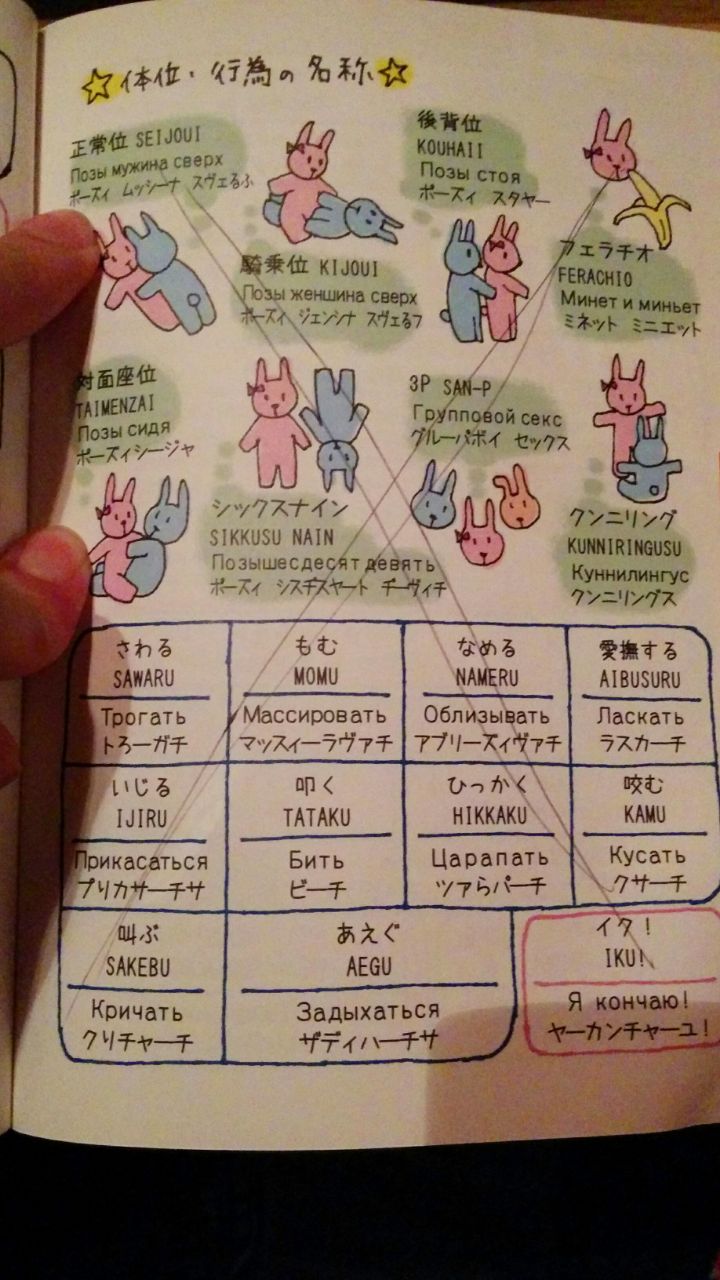 体位・行為の名称
正常位 SEIJOUI
Позы мужина сверх
ポーズィ ムッシーナ スヴェるふ
騎乗位 KIJOUI
Позы женшина сверх
ポーズィ ジェンシナ スヴェるフ
後背位
KOUHAII
Позы стоя
ポーズィ スタヤー
フェラチオ
FERACHIO
Минет и миньет
ミネット ミニエット
対面座位
TAIMENZAI
Позы сидя
ポーズィシージャ
シックスナイン
SIKKUSU NAIN
Позышесдесят девять
ポーズィ シスヂスヤート ヂーヴィチ
3P SAN-P
Групповой секс
グルーパボイ セックス
クンニリング
KUNNIRINGUSU
Куннилингус
クンニリングス
さわる
SAWARU
Трогать
トろーガチ
もむ
MOMU
Массировать
マッスィーラヴァチ
なめる
NAMERU
Облизывать
アブリーズィヴァチ
愛撫する
AIBUSURU
Ласкать
ラスカーチ
いじる
IJIRU
Прикасаться
プリカサーチサ
叩く
TATAKU
Бить
ビーチ
ひっかく
HIKKAKU
Царапать
ツァらパーチ
咬む
KAMU
Кусать
クサーチ
叫ぶ
SAKEBU
Кричать
クりチャーチ
あえぐ
AEGU
Задыхаться
ザディハーチサ
イク！
IKU!
Я кончаю!
ヤーカンチャーユ！